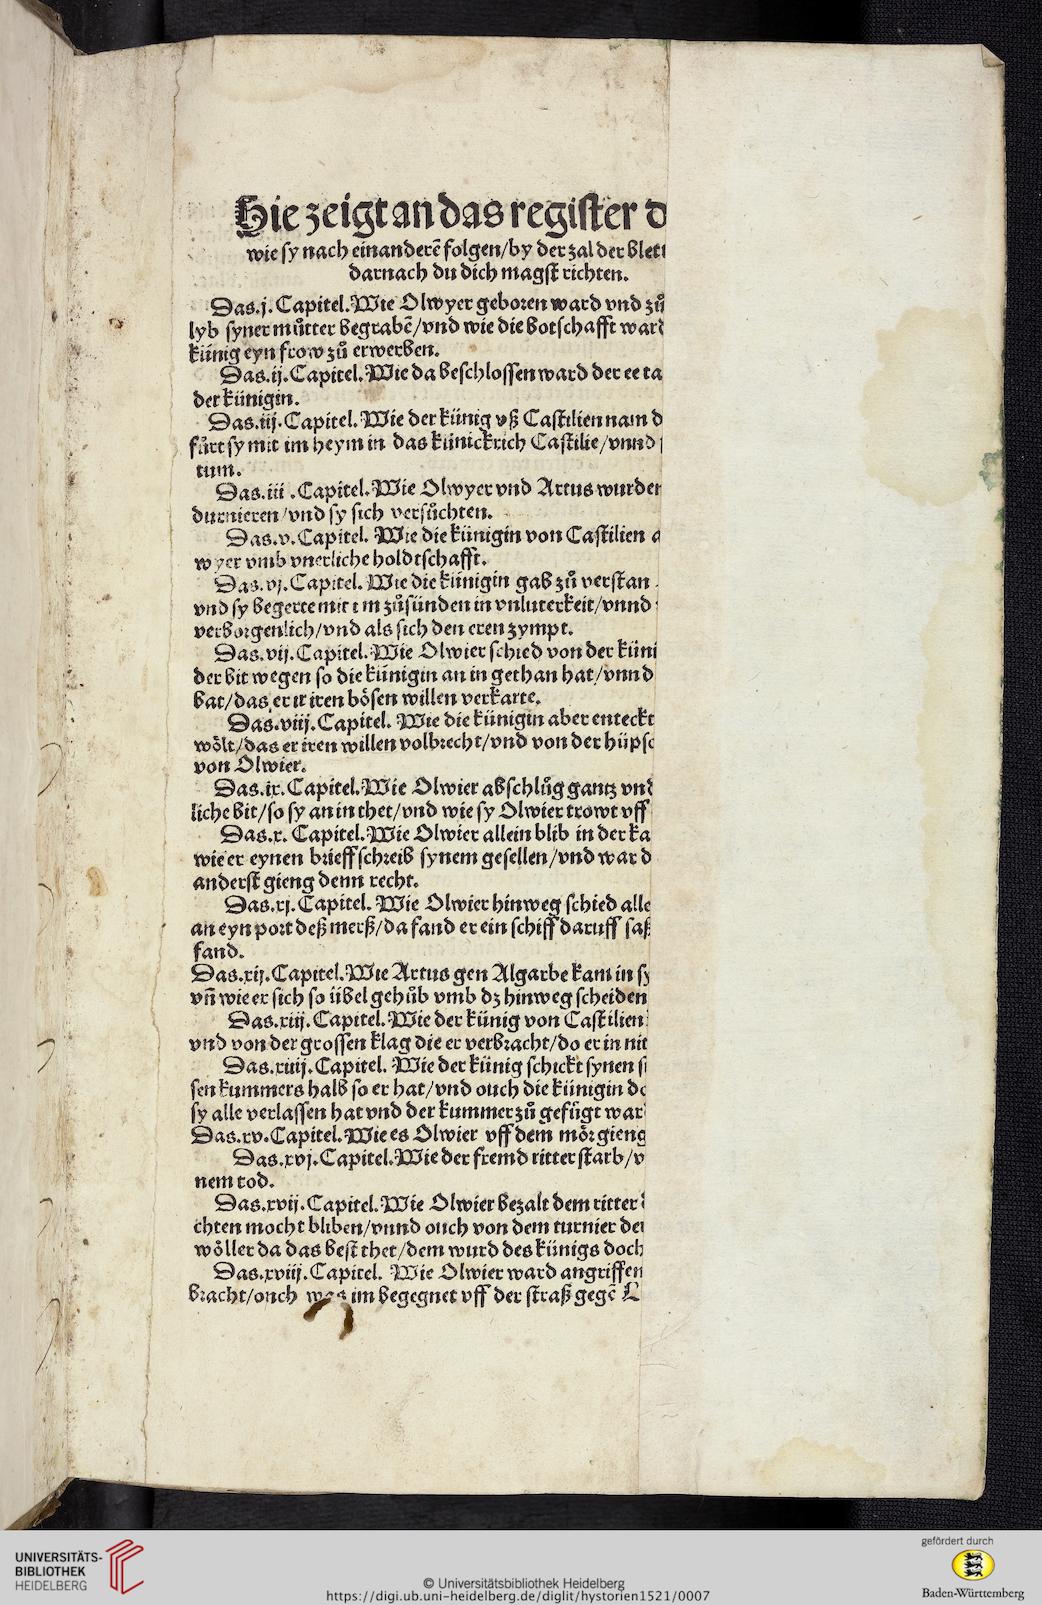 Hie zeigt an das register d
wie sy nach einanderē folgen/by der zal der blett
darnach du dich magst richten.
Das.j.Capitel.Wie Olwyer geboren ward vnd zů
lyb syner můtter begrabē/vnd wie die botschafft ward
künig eyn frow zů erwerben.
Das.ij.Capitel.Wie da beschlossen ward der ee ta
der künigin.
Das.iij.Capitel.Wie der künig vß Castilien nam d
fůrt sy mit im heym in das künickrich Castilie/vnnd
tum.
Das.iii .Capitel.Wie Olwyer vnd Artus wurden
durnieren/vnd sy sich versůchten.
Das.v.Capitel. Wie die künigin von Castilien a
wyer vmb vnerliche holdtschafft.
Das.vj.Capitel.Wie die künigin gab zů verstan
vnd sy begerte mit im zů sünden in vnluterkeit/vnnd
verborgenlich/vnd als sich den eren zympt.
Das.vij.Capitel.Wie Olwier schied von der küni
der bit wegen so die künigin an in gethan hat/vnnd
bat/das er ir iren bösen willen verkarte.
Das.viij.Capitel. Wie die künigin aber enteckt
wölt/das er iren willen volbrecht/vnd von der hüpsc
von Olwier.
Das.ix.Capitel.Wie Olwier abschlůg gantz vnd
liche bit/so sy an in thet/vnd wie sy Olwier trowt vff
Das.x. Capitel.Wie Olwier allein blib in der ka
wie er eynen brieff schreib synem gesellen/vnd war d
anderst gieng denn recht.
Das.xj.Capitel. Wie Olwier hinweg schied alle
an eyn port deß merß/da fand er ein schiff daruff saß
fand.
Das.xij.Capitel.Wie Artus gen Algarbe kam in sy
vñ wie er sich so übel gehůb vmb dz hinweg scheiden
Das.xiij.Capitel. Wie der künig von Castilien
vnd von der grossen klag die er verbracht/do er in nit
Das.xiiij.Capitel. Wie der künig schickt synen si
sen kummers halb so er hat/vnd ouch die künigin do
sy alle verlassen hat vnd der kummer zů gefügt war
Das.xv.Capitel.Wie es Olwier vff dem mör gieng
Das.xvj.Capitel.Wie der fremd ritter starb/v
nem tod.
Das.xvij.Capitel.Wie Olwier bezalt dem ritter
chten mocht bliben/vnnd ouch von dem turnier der
wöller da das best thet/dem wurd des künigs doch
Das.xviij.Capitel. Wie Olwier ward angriffen
bracht/ouch was im begegnet vff der straß gegē L
UNIVERSITÄTS-
BIBLIOTHEK
HEIDELBERG
© Universitätsbibliothek Heidelberg
https://digi.ub.uni-heidelberg.de/diglit/hystorien1521/0007
gefördert durch
Baden-Württemberg